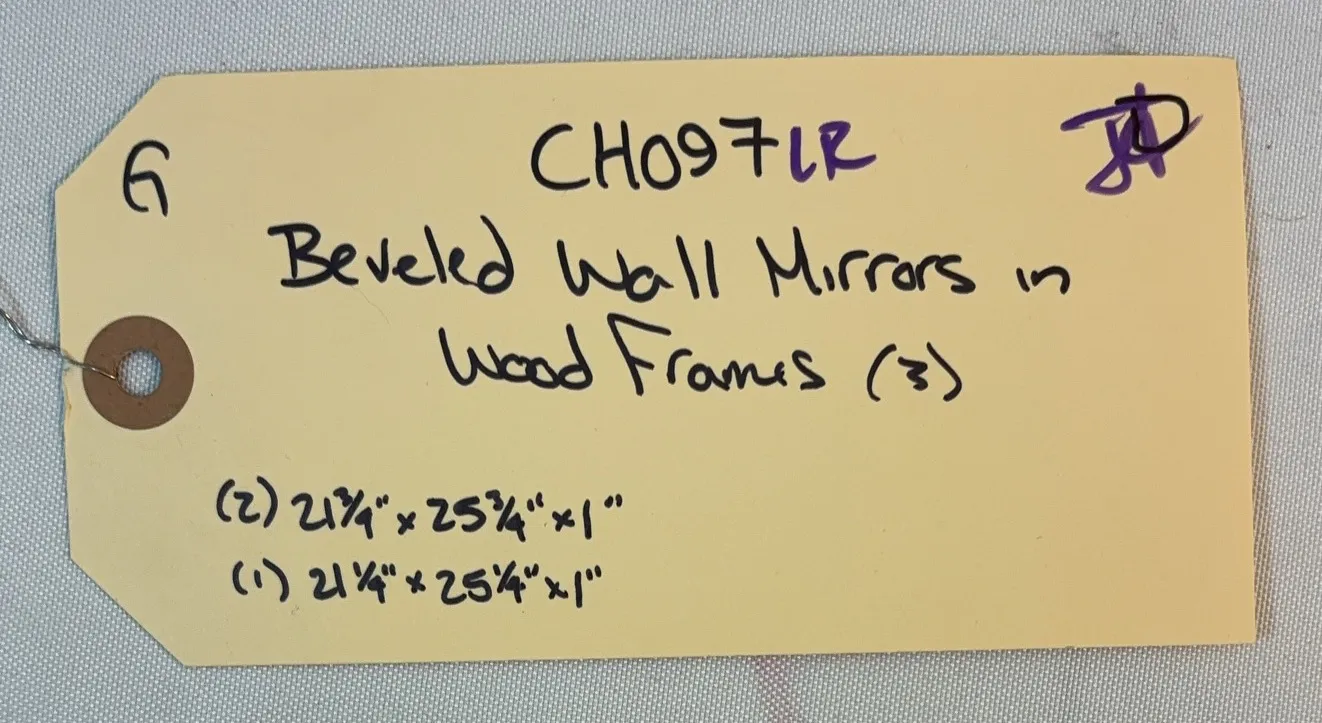 G
CH097LR
Beveled Wall Mirrors in
Wood Frames (3)
(2) 21¾" x 25¾" x 1"
(1) 21¼" x 25¼" x 1"